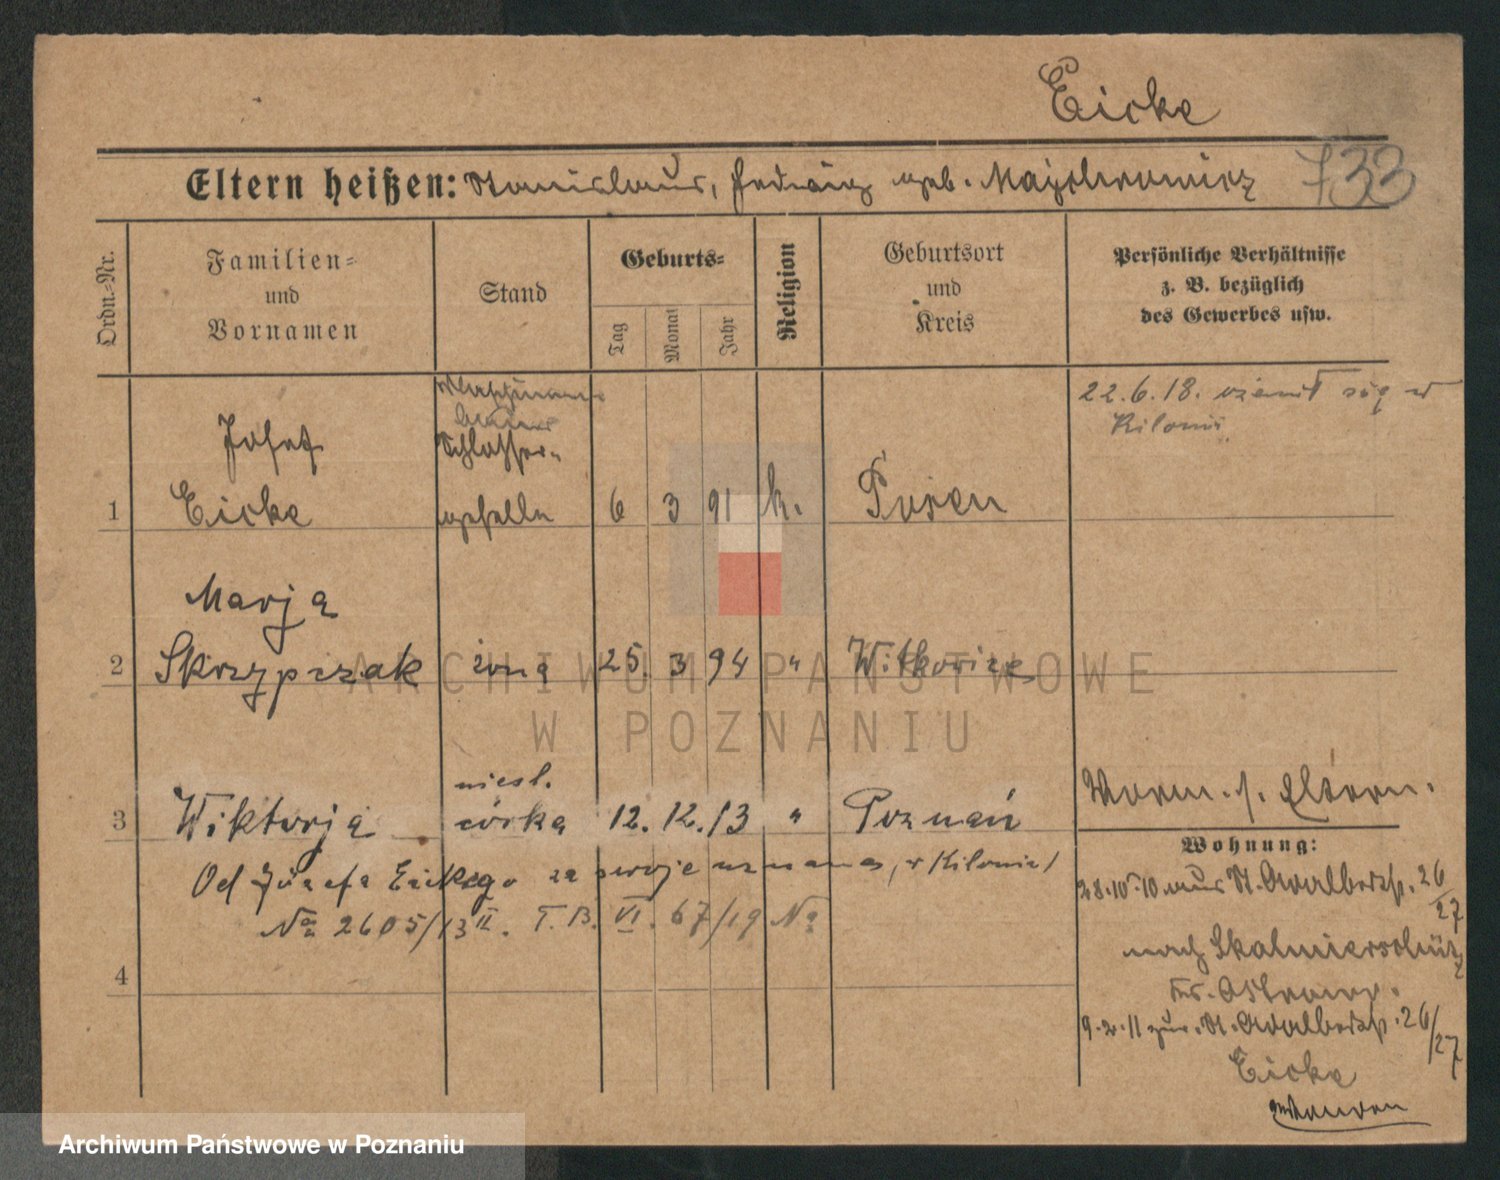 Eicke
Eltern heißen: Stanislaus, Hedwig geb. Majchrowicz
733
Ordn.-Nr.
Familien- und Vornamen
Stand
Geburts-
Tag
Monat
Jahr
Religion
Geburtsort und Kreis
Persönliche Verhältnisse
z. B. bezüglich
des Gewerbes usw.
22.6.18. ożenił się w
Kilonii
Maschinen-
bauer
Josef
Schlosser-
1 Eicke geselle 6 3 91 k. Posen
Marja
2 Skrzypczak żona 25. 3 94 " Witkowice
niesl.
3 Wiktorja córka 12. 12. 13 " Poznań
Od Józefa Eickego za swoje uznana, w Kilonie/
№ 2605/13 II. T.B. VI. 67/19 №
4
Worm. s. Eltern.
Wohnung:
28.10.10 aus St. Adalbertstr. 26/27
nach Skalmierschütz
Kr. Ostrowo.
9.2.11 zur. St. Adalbertstr. 26/27
Eicke
ARCHIWUM PAŃSTWOWE
W POZNANIU
Archiwum Państwowe w Poznaniu